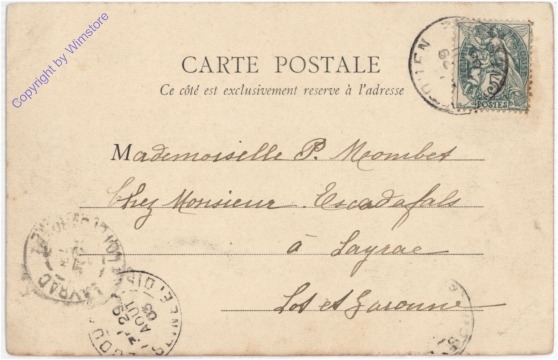 Copyright by Wimstore
CARTE POSTALE
Ce côté est exclusivement reserve à l'adresse
POSTES
Mademoiselle P. Mombet
Chez Monsieur Escadafals
à Layrac
Lot et Garonne
LAYRAC
29
AOUT
03